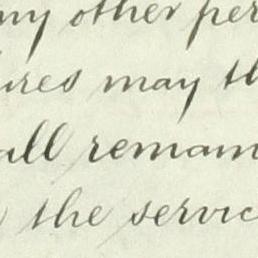 any other per
ures may th
all remain
the servic